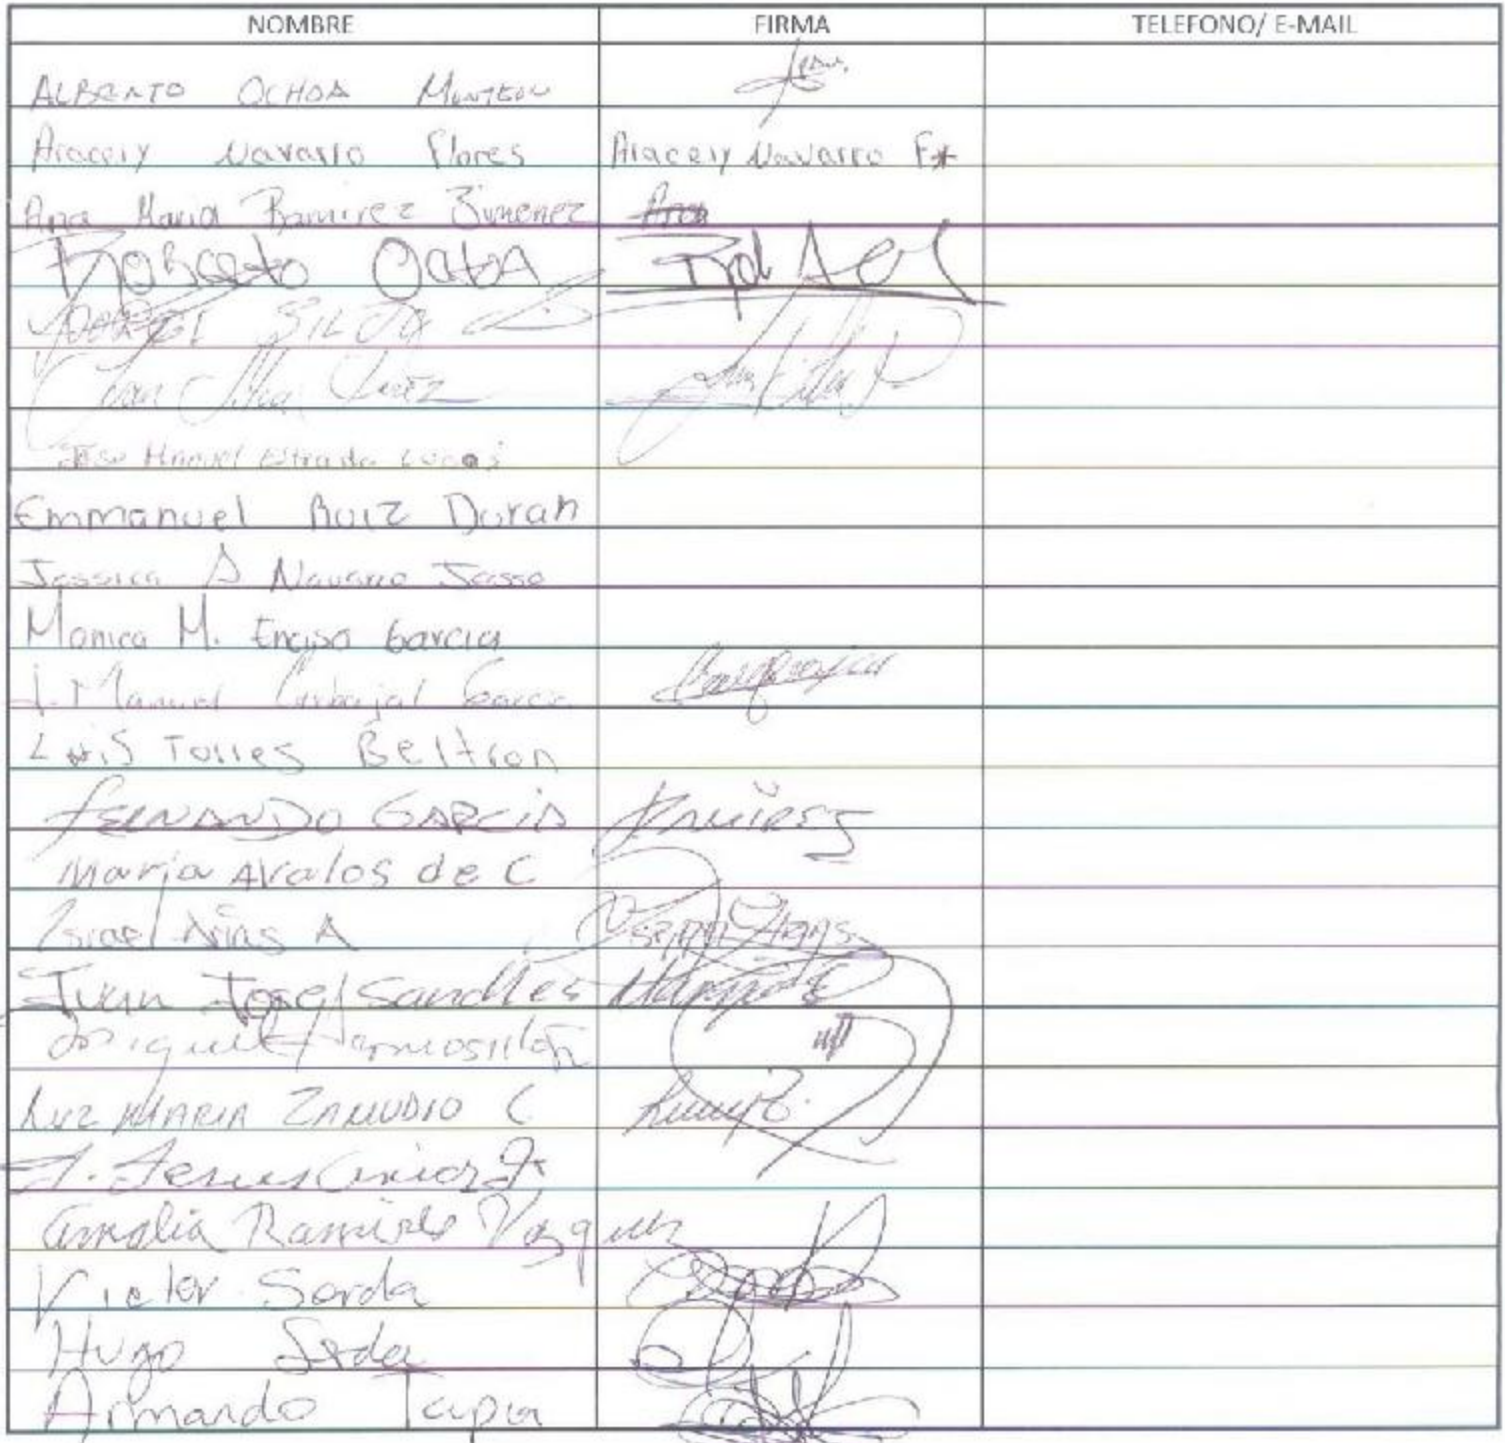 NOMBRE FIRMA TELEFONO/ E-MAIL
ALBERTO OCHOA
Aracely Navarro Flores Aracely Navarro F*
Ana Maria Ramirez Jimenez Ana
Roberto OchoA
JORGE SILVA
Juan Silva
Jose Manuel Estrada Lucas
Emmanuel Ruiz Duran
Jessica A Navarro Jasso
Monica M. Enciso Garcia
J. Manuel Carbajal Garcia
Luis Torres Beltran
FERNANDO GARCIA RAMIREZ
Maria Avalos de C
Israel Arias A ISRAEL ARIAS
Juan Jose Sanches
Miguel Hermosillo
LUZ MARIA ZAMUDIO C
J. Jesus
Amalia Ramirez Vazquez
Victor Serda
Hugo Serda
Armando Tapia